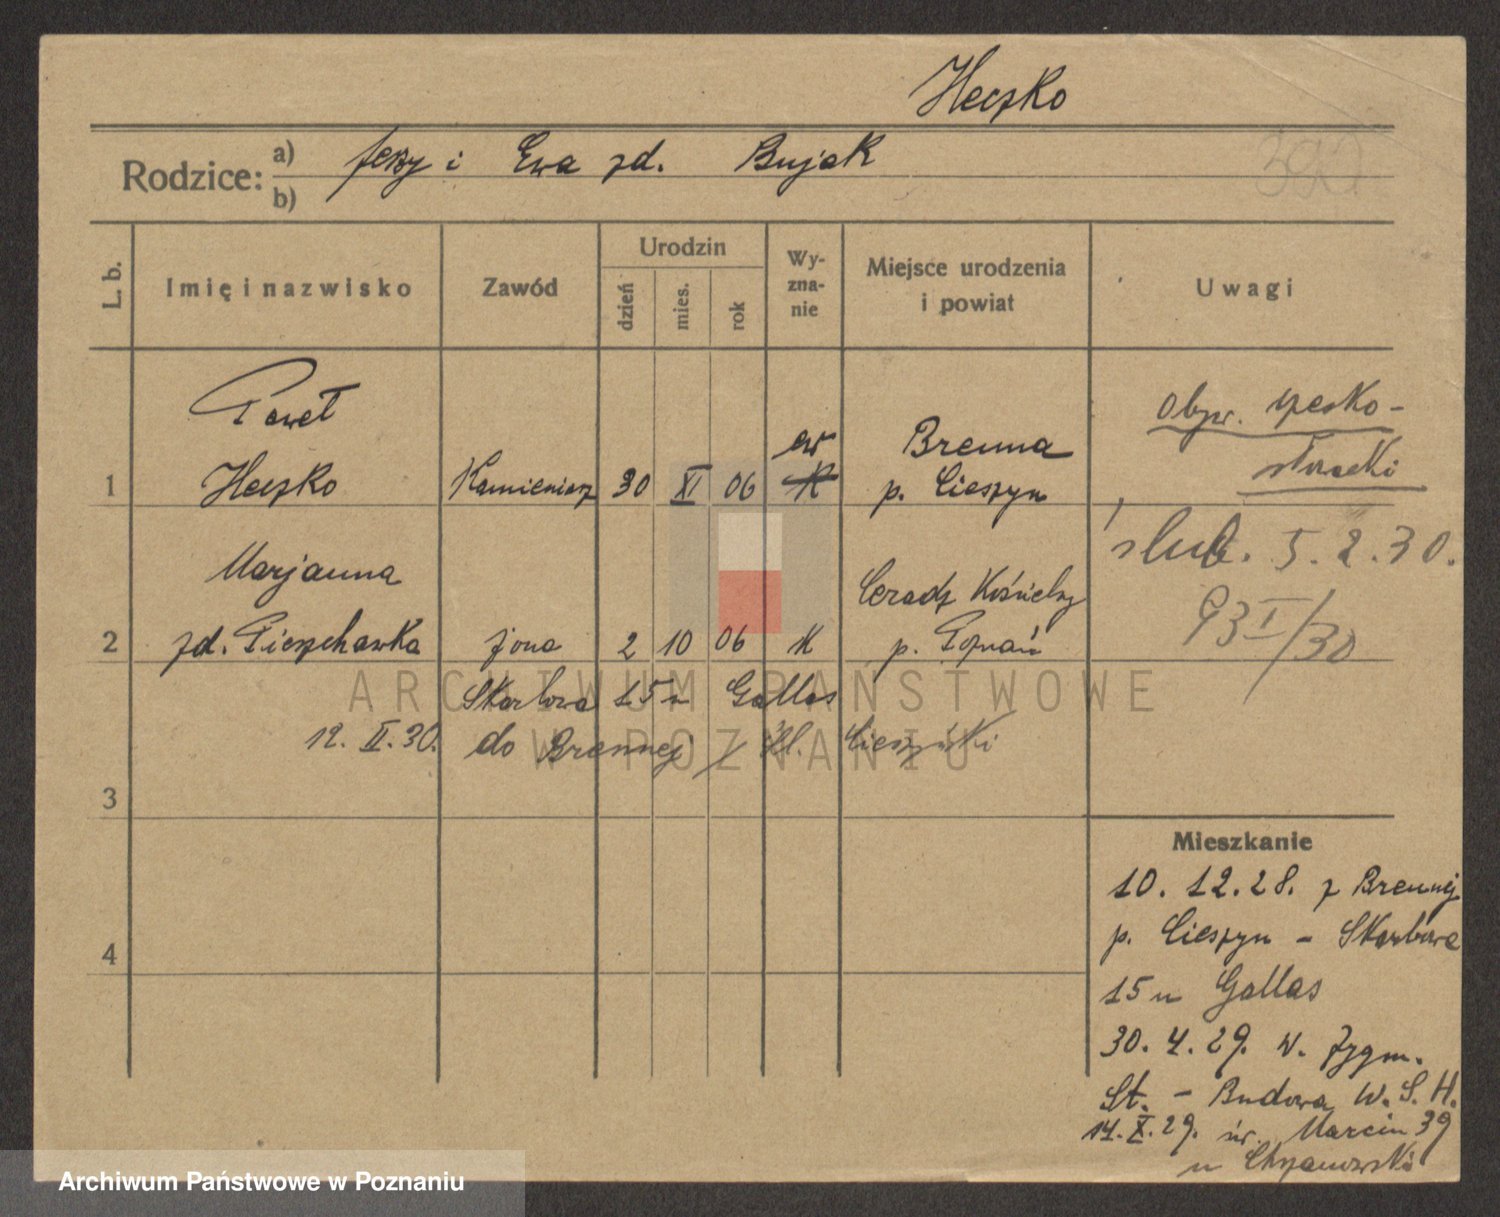 Heczko
Rodzice:
a) Jerzy i Ewa zd. Bujak
b)
L. b.
Imię i nazwisko
Zawód
Urodzin
dzień
mies.
rok
Wy-
zna-
nie
Miejsce urodzenia
i powiat
Uwagi
Paweł
1 Heczko Kamieniarz 30 XI 06 ew K
Brenna
p. Cieszyn
obyw. czesko-
słowacki
Marjanna
2 zd. Pieszchawka żona 2 10 06 K
Ceradz Kościelny
p. Poznań
ślub. 5.2.30.
93 I/30
Skarbowa 15 u Gallas
12. II. 30. do Brennej / Śl. Cieszyński
3
4
Mieszkanie
10. 12. 28. z Brennej
p. Cieszyn – Skarbowa
15 u Gallas
30. 4. 29. W. Zygm.
St. – Budowa W. S. H.
14. X. 29. św. Marcin 39
u Chrzanowski
ARCHIWUM PAŃSTWOWE
W POZNANIU
Archiwum Państwowe w Poznaniu